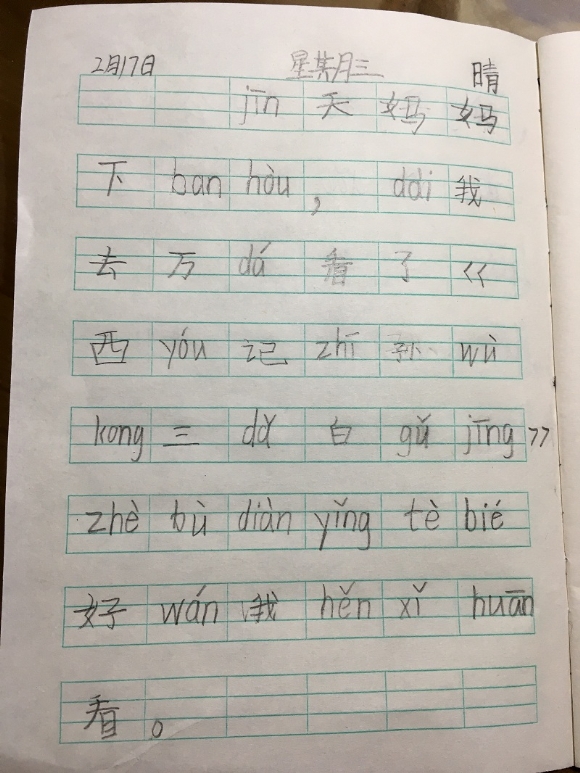 2月17日 星期三 晴
jīn 天 妈 妈
下 ban hòu , dài 我
去 万 dá 看 了 《
西 yóu 记 zhī 孙 wù
kong 三 dǎ 白 gǔ jīng 》
zhè bù diàn yǐng tè bié
好 wán 我 hěn xǐ huān
看 。